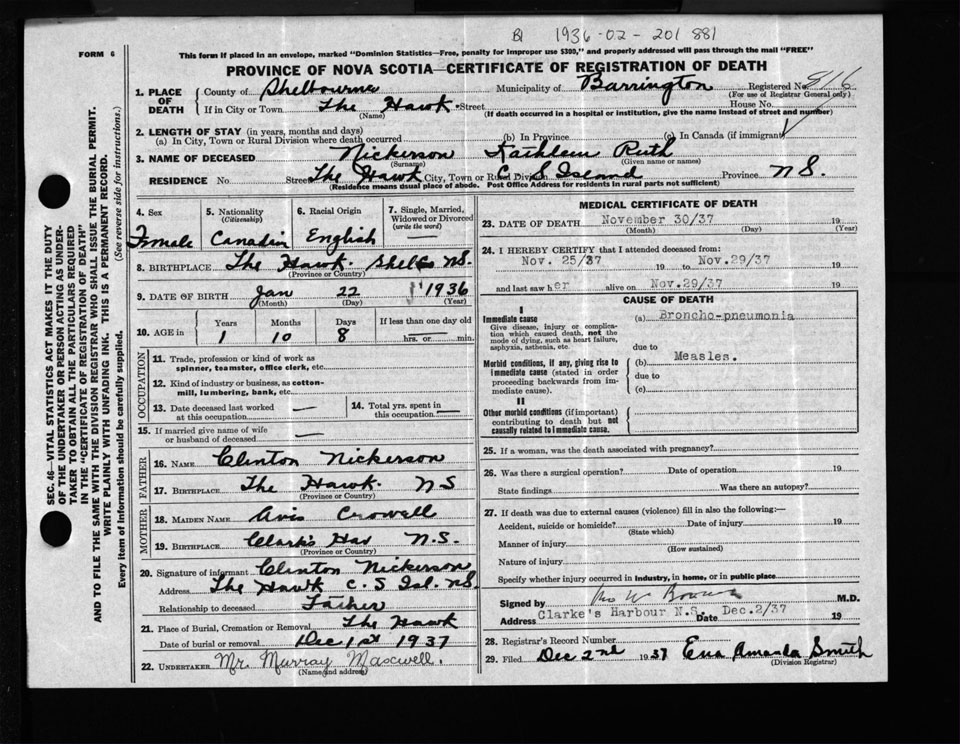 B 1936-02-201881
FORM 6
This form if placed in an envelope, marked "Dominion Statistics—Free, penalty for improper use $300," and properly addressed will pass through the mail "FREE"
PROVINCE OF NOVA SCOTIA—CERTIFICATE OF REGISTRATION OF DEATH
1. PLACE OF DEATH
County of Shelbourne Municipality of Barrington Registered No. 
(For use of Registrar General only)
If in City or Town The Hawk Street House No.
(Name) (If death occurred in a hospital or institution, give the name instead of street and number)
2. LENGTH OF STAY (in years, months and days)
(a) In City, Town or Rural Division where death occurred (b) In Province (c) In Canada (if immigrant)
3. NAME OF DECEASED Nickerson Kathleen Ruth
(Surname) (Given name or names)
RESIDENCE No. Street The Hawk City, Town or Rural Division C S Island Province N S.
(Residence means usual place of abode. Post Office Address for residents in rural parts not sufficient)
4. Sex Female
5. Nationality (Citizenship) Canadin
6. Racial Origin English
7. Single, Married, Widowed or Divorced (write the word) —
8. BIRTHPLACE The Hawk. Shel Co NS.
(Province or Country)
9. DATE OF BIRTH Jan 22 1936
(Month) (Day) (Year)
10. AGE in Years Months Days If less than one day old
1 10 8 hrs. or min.
OCCUPATION
11. Trade, profession or kind of work as spinner, teamster, office clerk, etc.
12. Kind of industry or business, as cotton-mill, lumbering, bank, etc.
13. Date deceased last worked at this occupation —
14. Total yrs. spent in this occupation —
15. If married give name of wife or husband of deceased —
FATHER
16. NAME Clinton Nickerson
17. BIRTHPLACE The Hawk. N S
(Province or Country)
MOTHER
18. MAIDEN NAME Avis Crowell
19. BIRTHPLACE Clark's Har N.S.
(Province or Country)
20. Signature of informant Clinton Nickerson
Address The Hawk C. S Isl. NS.
Relationship to deceased Father
21. Place of Burial, Cremation or Removal The Hawk
Date of burial or removal Dec 1st 1937
22. UNDERTAKER Mr. Murray Maxwell.
(Name and address)
MEDICAL CERTIFICATE OF DEATH
23. DATE OF DEATH November 30/37
(Month) (Day) (Year)
24. I HEREBY CERTIFY that I attended deceased from:
Nov. 25/37 19 to Nov.29/37 19
and last saw her alive on Nov.29/37 19
CAUSE OF DEATH
I
Immediate cause
Give disease, injury or complication which caused death, not the mode of dying, such as heart failure, asphyxia, asthenia, etc.
(a) Broncho-pneumonia
due to
Morbid conditions, if any, giving rise to immediate cause (stated in order proceeding backwards from immediate cause).
(b) Measles.
due to
(c)
II
Other morbid conditions (if important) contributing to death but not causally related to immediate cause.
25. If a woman, was the death associated with pregnancy?
26. Was there a surgical operation? Date of operation 19
State findings Was there an autopsy?
27. If death was due to external causes (violence) fill in also the following:—
Accident, suicide or homicide? Date of injury 19
(State which)
Manner of injury
(How sustained)
Nature of injury
Specify whether injury occurred in industry, in home, or in public place
Signed by M.D.
Address Clarke's Harbour N.S. Date Dec.2/37 19
28. Registrar's Record Number
29. Filed Dec 2nd 1937 Ena Amanda Smith
(Division Registrar)
SEC. 46—VITAL STATISTICS ACT MAKES IT THE DUTY
OF THE UNDERTAKER OR PERSON ACTING AS UNDER-
TAKER TO OBTAIN ALL THE PARTICULARS REQUIRED
IN THE "CERTIFICATE OF REGISTRATION OF DEATH"
AND TO FILE THE SAME WITH THE DIVISION REGISTRAR WHO SHALL ISSUE THE BURIAL PERMIT.
WRITE PLAINLY WITH UNFADING INK. THIS IS A PERMANENT RECORD.
Every item of information should be carefully supplied. (See reverse side for instructions.)